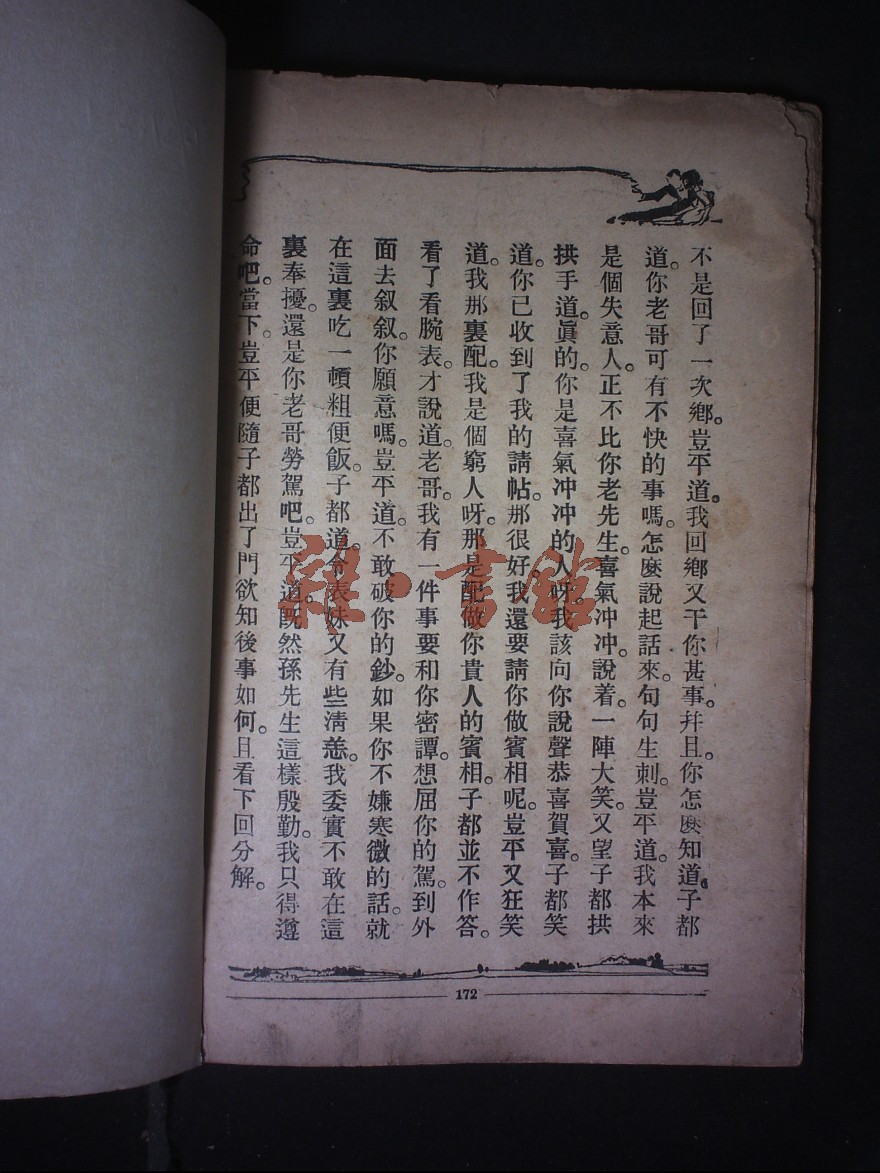 不是回了一次鄉。豈平道。我回鄉又干你甚事。幷且你怎麽知道。子都
道。你老哥可有不快的事嗎。怎麽說起話來。句句生刺。豈平道。我本來
是個失意人。正不比你老先生。喜氣冲冲。說着。一陣大笑。又望子都拱
拱手道。眞的。你是喜氣冲冲的人呀。我該向你說聲恭喜賀喜。子都笑
道。你已收到了我的請帖。那很好。我還要請你做賓相呢。豈平又狂笑
道。我那裏配。我是個窮人呀。那是配做你貴人的賓相。子都並不作答。
看了看腕表。才說道。老哥。我有一件事要和你密譚。想屈你的駕。到外
面去叙叙。你願意嗎。豈平道。不敢破你的鈔。如果你不嫌寒微的話。就
在這裏吃一頓粗便飯。子都道。令表妹又有些淸恙。我委實不敢在這
裏奉擾。還是你老哥勞駕吧。豈平道。旣然孫先生這樣殷勤。我只得遵
命吧。當下。豈平便隨子都出了門欲知後事如何。且看下回分解。
172
雜·書館